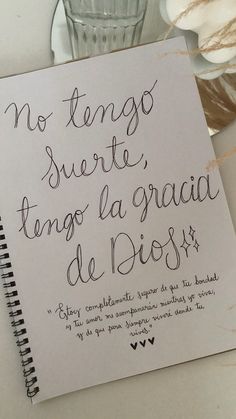 No tengo
suerte,
tengo la gracia
de Dios
"Estoy completamente seguro de que tu bondad
y tu amor me acompañarán mientras yo viva,
y de que para siempre viviré donde tú
vives."